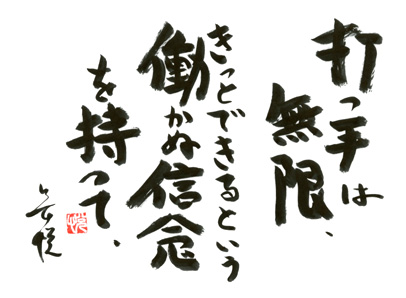 打つ手は
無限、
きっとできるという
働かぬ信念
を持って、